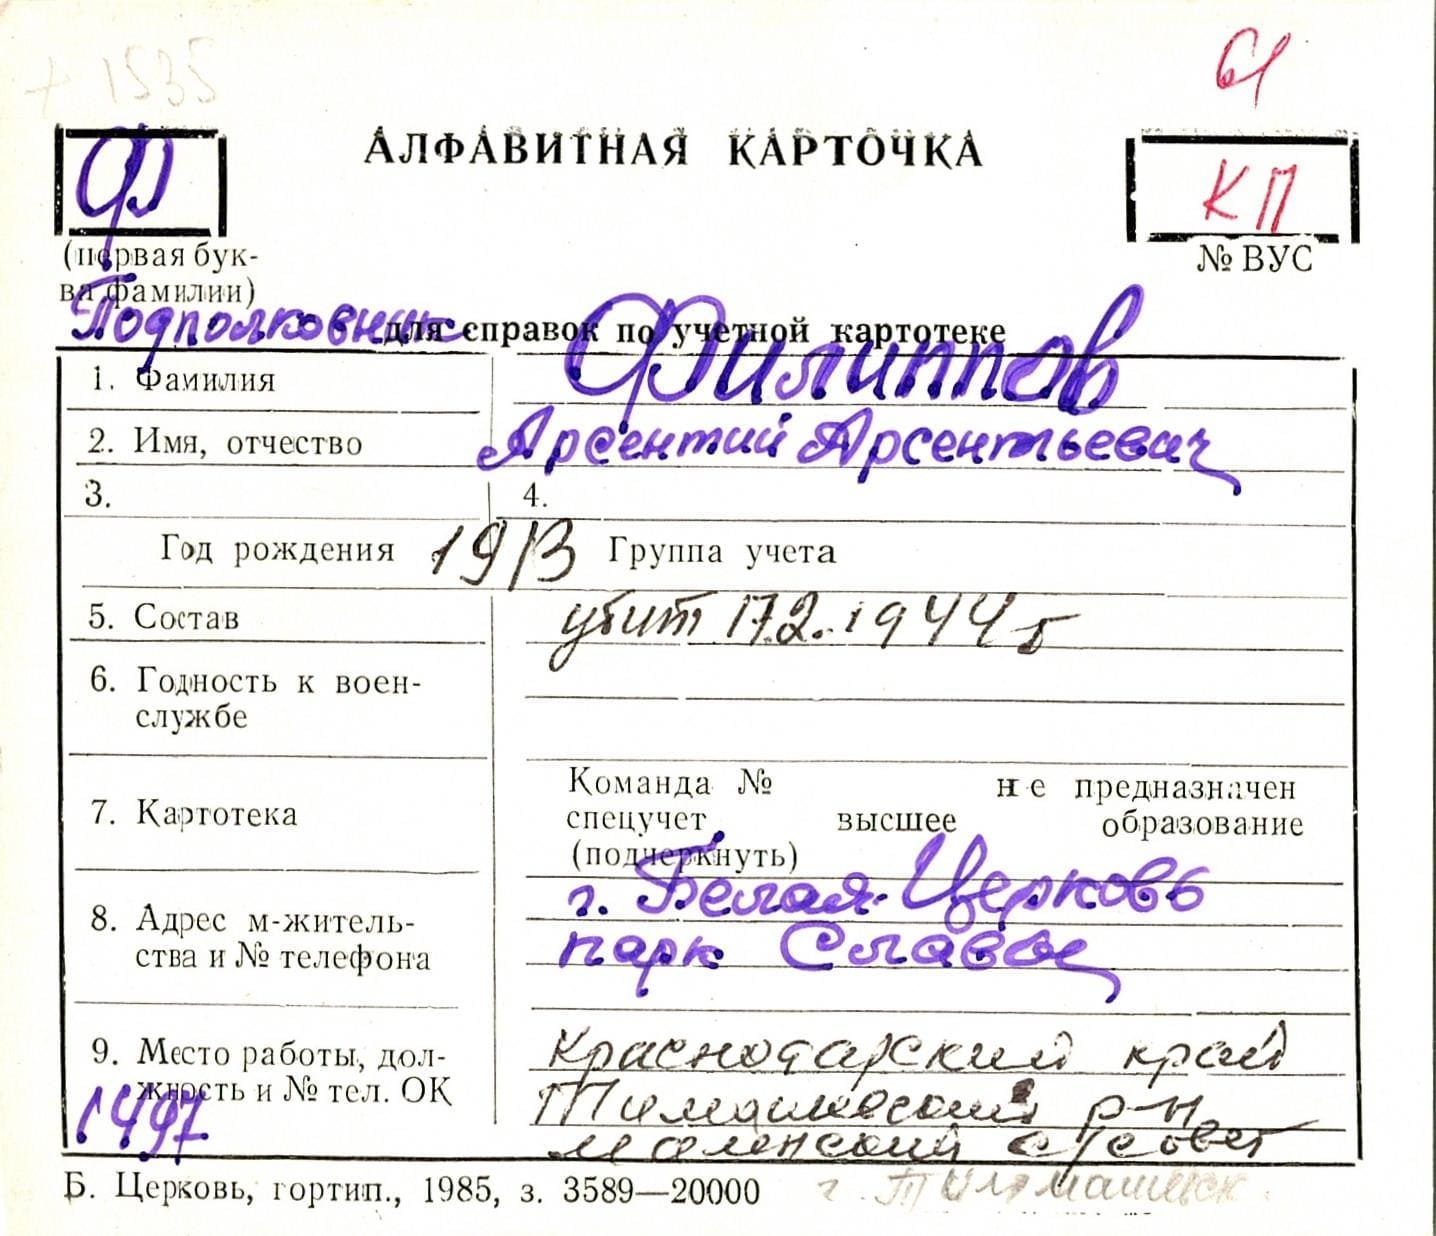 + 1535
61
Ф
АЛФАВИТНАЯ КАРТОЧКА
КП
(первая бук-
ва фамилии)
№ ВУС
Подполковник
для справок по учетной картотеке
1. Фамилия Филиппов
2. Имя, отчество Арсентий Арсентьевич
3. 4.
Год рождения 1913 Группа учета
5. Состав убит 17.2.1944 г
6. Годность к воен-
службе
Команда № не предназначен
7. Картотека спецучет высшее образование
(подчеркнуть)
г. Белая-Церковь
8. Адрес м-житель-
ства и № телефона парк Славы
9. Место работы, дол- Краснодарский край
жность и № тел. ОК Тимашевский р-н
1497 с/совет
Б. Церковь, гортип., 1985, з. 3589—20000 г.